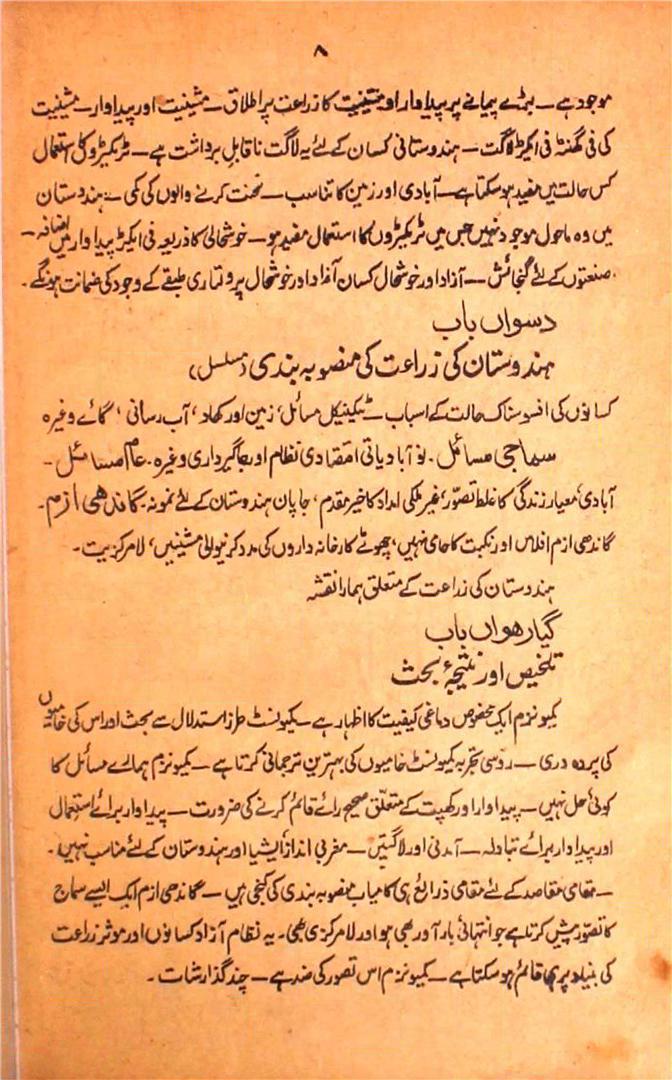 ۸
موجود ہے – بڑے پیمانے پر پیداوار اور مشینیت کا زراعت پر اطلاق – مشینیت اور پیداوار – مشینیت
کی فی گھنٹہ فی ایکڑ لاگت – ہندوستانی کسان کے لئے یہ لاگت ناقابلِ برداشت ہے – ٹریکٹرو کا استعمال
کس حالت میں مفید ہو سکتا ہے – آبادی اور زمین کا تناسب – محنت کرنے والوں کی کمی – ہندوستان
میں وہ ماحول موجود نہیں جس میں ٹریکٹروں کا استعمال مفید ہو – خوشحالی کا ذریعہ فی ایکڑ پیداوار میں اضافہ –
صنعتوں کے لئے گنجائش – آزاد اور خوشحال کسان آزاد اور خوشحال پرولتاری طبقے کے وجود کی ضمانت ہونگے۔
دسواں باب
ہندوستان کی زراعت کی منصوبہ بندی (مسلسل)
کسانوں کی افسوسناک حالت کے اسباب – ٹیکنیکل مسائل، زمین اور کھاد، آب رسانی، گائے وغیرہ
سماجی مسائل۔ نو آبادیاتی اقتصادی نظام اور جاگیرداری وغیرہ۔ عام مسائل –
آبادی، معیار زندگی کا غلط تصوّر، غیر ملکی امداد کا خیر مقدم، جاپان ہندوستان کے لئے نمونہ۔ گاندھی ازم۔
گاندھی ازم افلاس اور نکبت کا حامی نہیں، چھوٹے کارخانہ داروں کی مدد کرنیوالی مشینیں، لامرکزیت۔
ہندوستان کی زراعت کے متعلق ہمارا نقشہ
گیارھواں باب
تلخیص اور نتیجۂ بحث
کمیونزم ایک مخصوص دماغی کیفیت کا اظہار ہے – کمیونسٹ طرز استدلال سے بحث اور اس کی خامیوں
کی پردہ دری – روسی تجربہ کمیونسٹ خامیوں کی بہترین ترجمانی کرتا ہے – کمیونزم ہمارے مسائل کا
کوئی حل نہیں – پیداوار اور کھپت کے متعلق صحیح رائے قائم کرنے کی ضرورت – پیداوار برائے استعمال
اور پیداوار برائے تبادلہ – آمدنی اور لاگتیں – مغربی انداز ایشیا اور ہندوستان کے لئے مناسب نہیں۔
– مقامی مقاصد کے لئے مقامی ذرائع ہی کامیاب منصوبہ بندی کی کنجی ہیں – گاندھی ازم ایک ایسے سماج
کا تصوّر پیش کرتا ہے جو انتہائی بارآور بھی ہو اور لامرکزی بھی۔ یہ نظام آزاد کسانوں اور موثر زراعت
کی بنیاد پر ہی قائم ہو سکتا ہے – کمیونزم اس تصور کی ضد ہے – چند گذارشات ۔